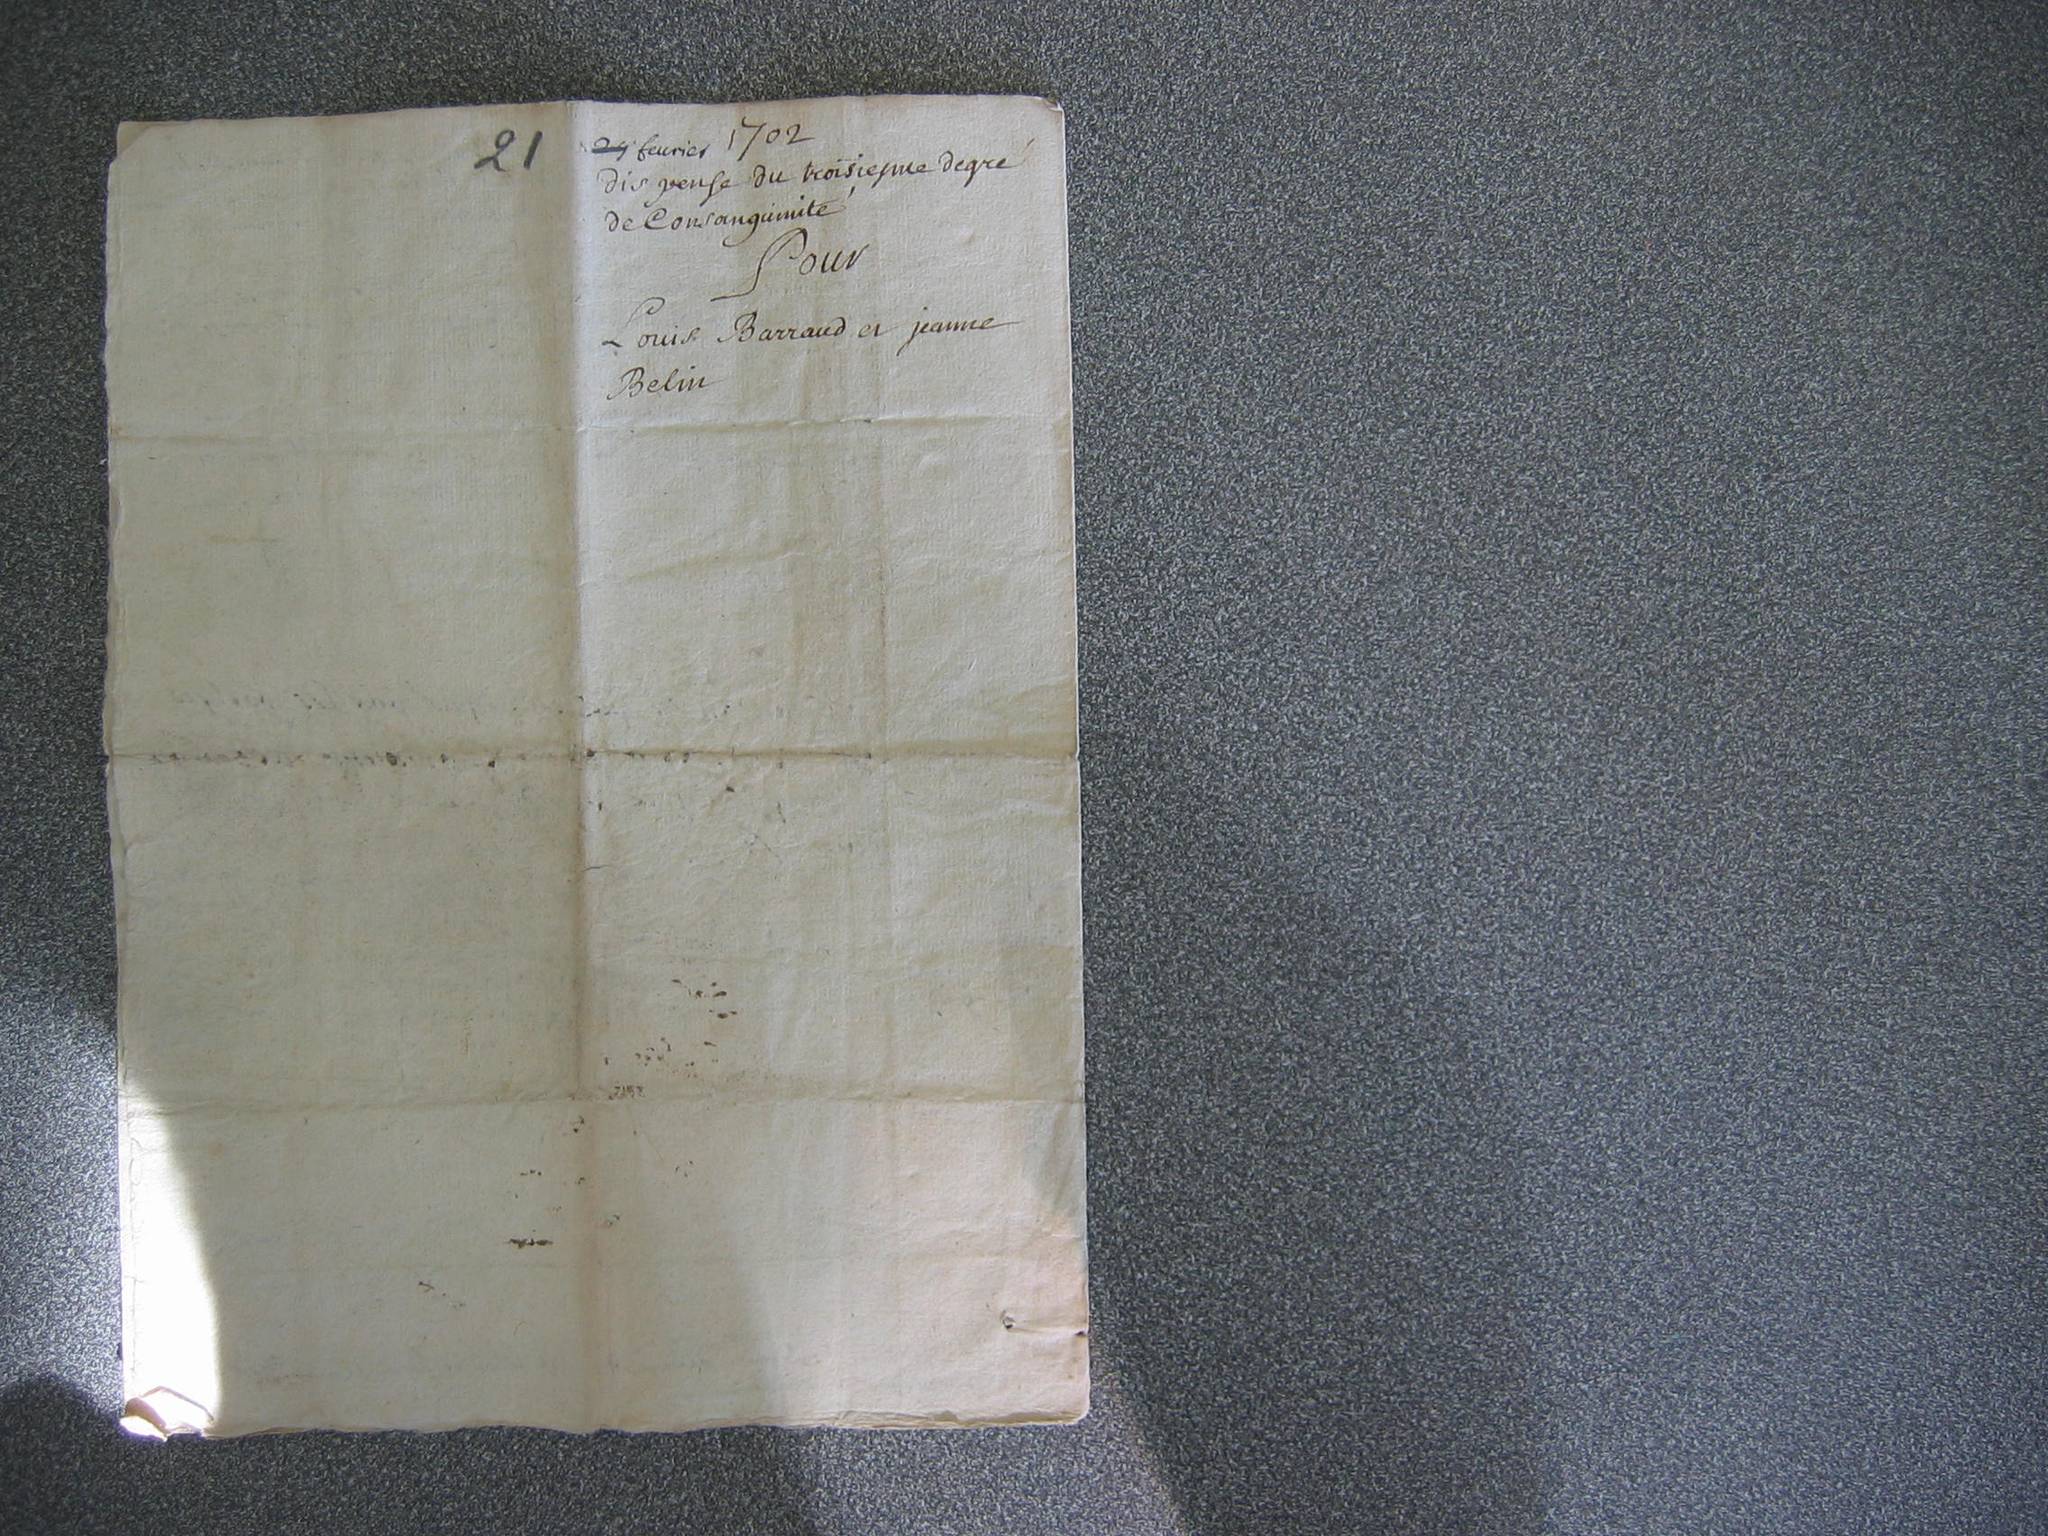 21
fevrier 1702
dispense du troisiesme degré
de Consanguinité
Pour
Louis Barraud et jeanne
Belin